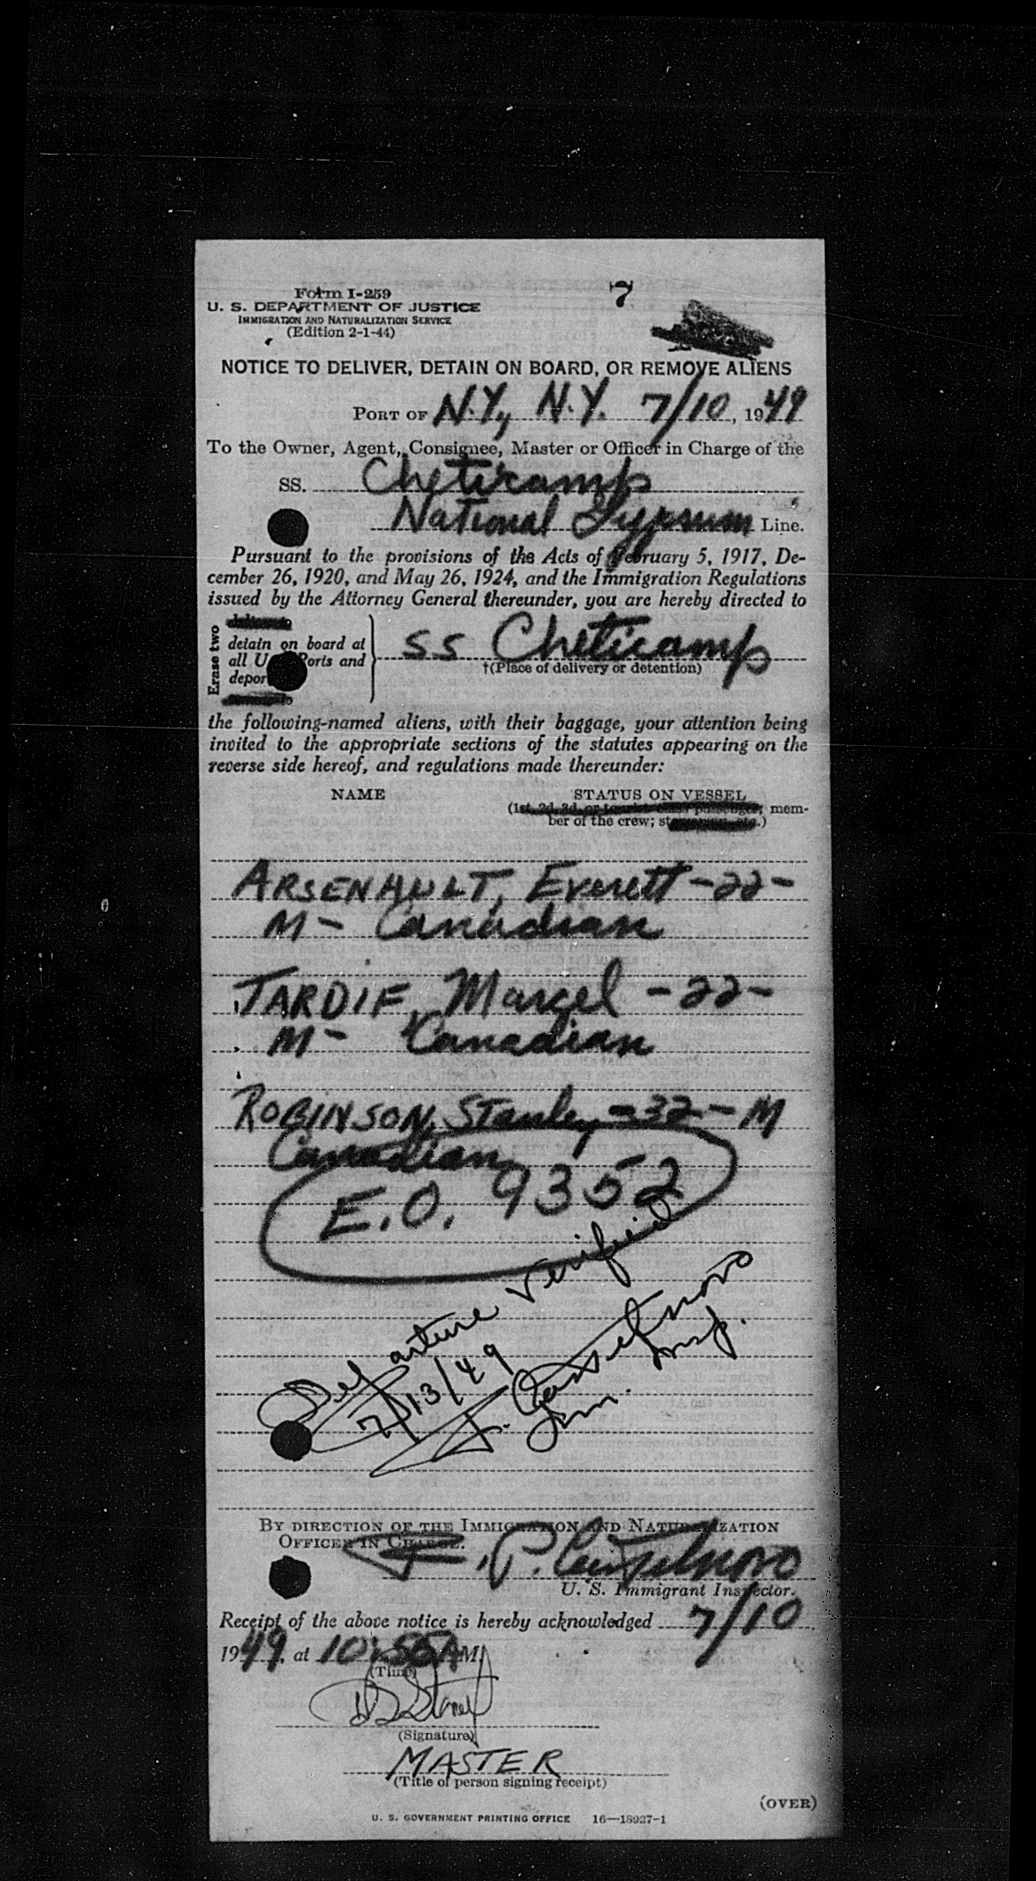 Form I-259
7
U. S. DEPARTMENT OF JUSTICE
IMMIGRATION AND NATURALIZATION SERVICE
(Edition 2-1-44)
NOTICE TO DELIVER, DETAIN ON BOARD, OR REMOVE ALIENS
PORT OF N.Y., N.Y. 7/10, 1949
To the Owner, Agent, Consignee, Master or Officer in Charge of the
SS. Cheticamp
National Gypsum Line.
Pursuant to the provisions of the Acts of February 5, 1917, De-
cember 26, 1920, and May 26, 1924, and the Immigration Regulations
issued by the Attorney General thereunder, you are hereby directed to
Erase two
detain on board at
all U Ports and
depor
SS Cheticamp
†(Place of delivery or detention)
the following-named aliens, with their baggage, your attention being
invited to the appropriate sections of the statutes appearing on the
reverse side hereof, and regulations made thereunder:
NAME STATUS ON VESSEL
(1st, 2d, 3d, or tourist class passenger; mem-
ber of the crew; st .)
ARSENAULT, Everett -22-
M- Canadian
TARDIF, Marcel -22-
M- Canadian
ROBINSON, Stanley -32- M
Canadian
E.O. 9352
Departure Verified
7/13/49
Imm. Insp.
BY DIRECTION OF THE IMMIGRATION AND NATURALIZATION
OFFICER IN CHARGE.
U. S. Immigrant Inspector.
Receipt of the above notice is hereby acknowledged 7/10,
1949, at 10:55 A M.
(Time)
(Signature)
MASTER
(Title of person signing receipt)
(OVER)
U. S. GOVERNMENT PRINTING OFFICE 16—18927-1